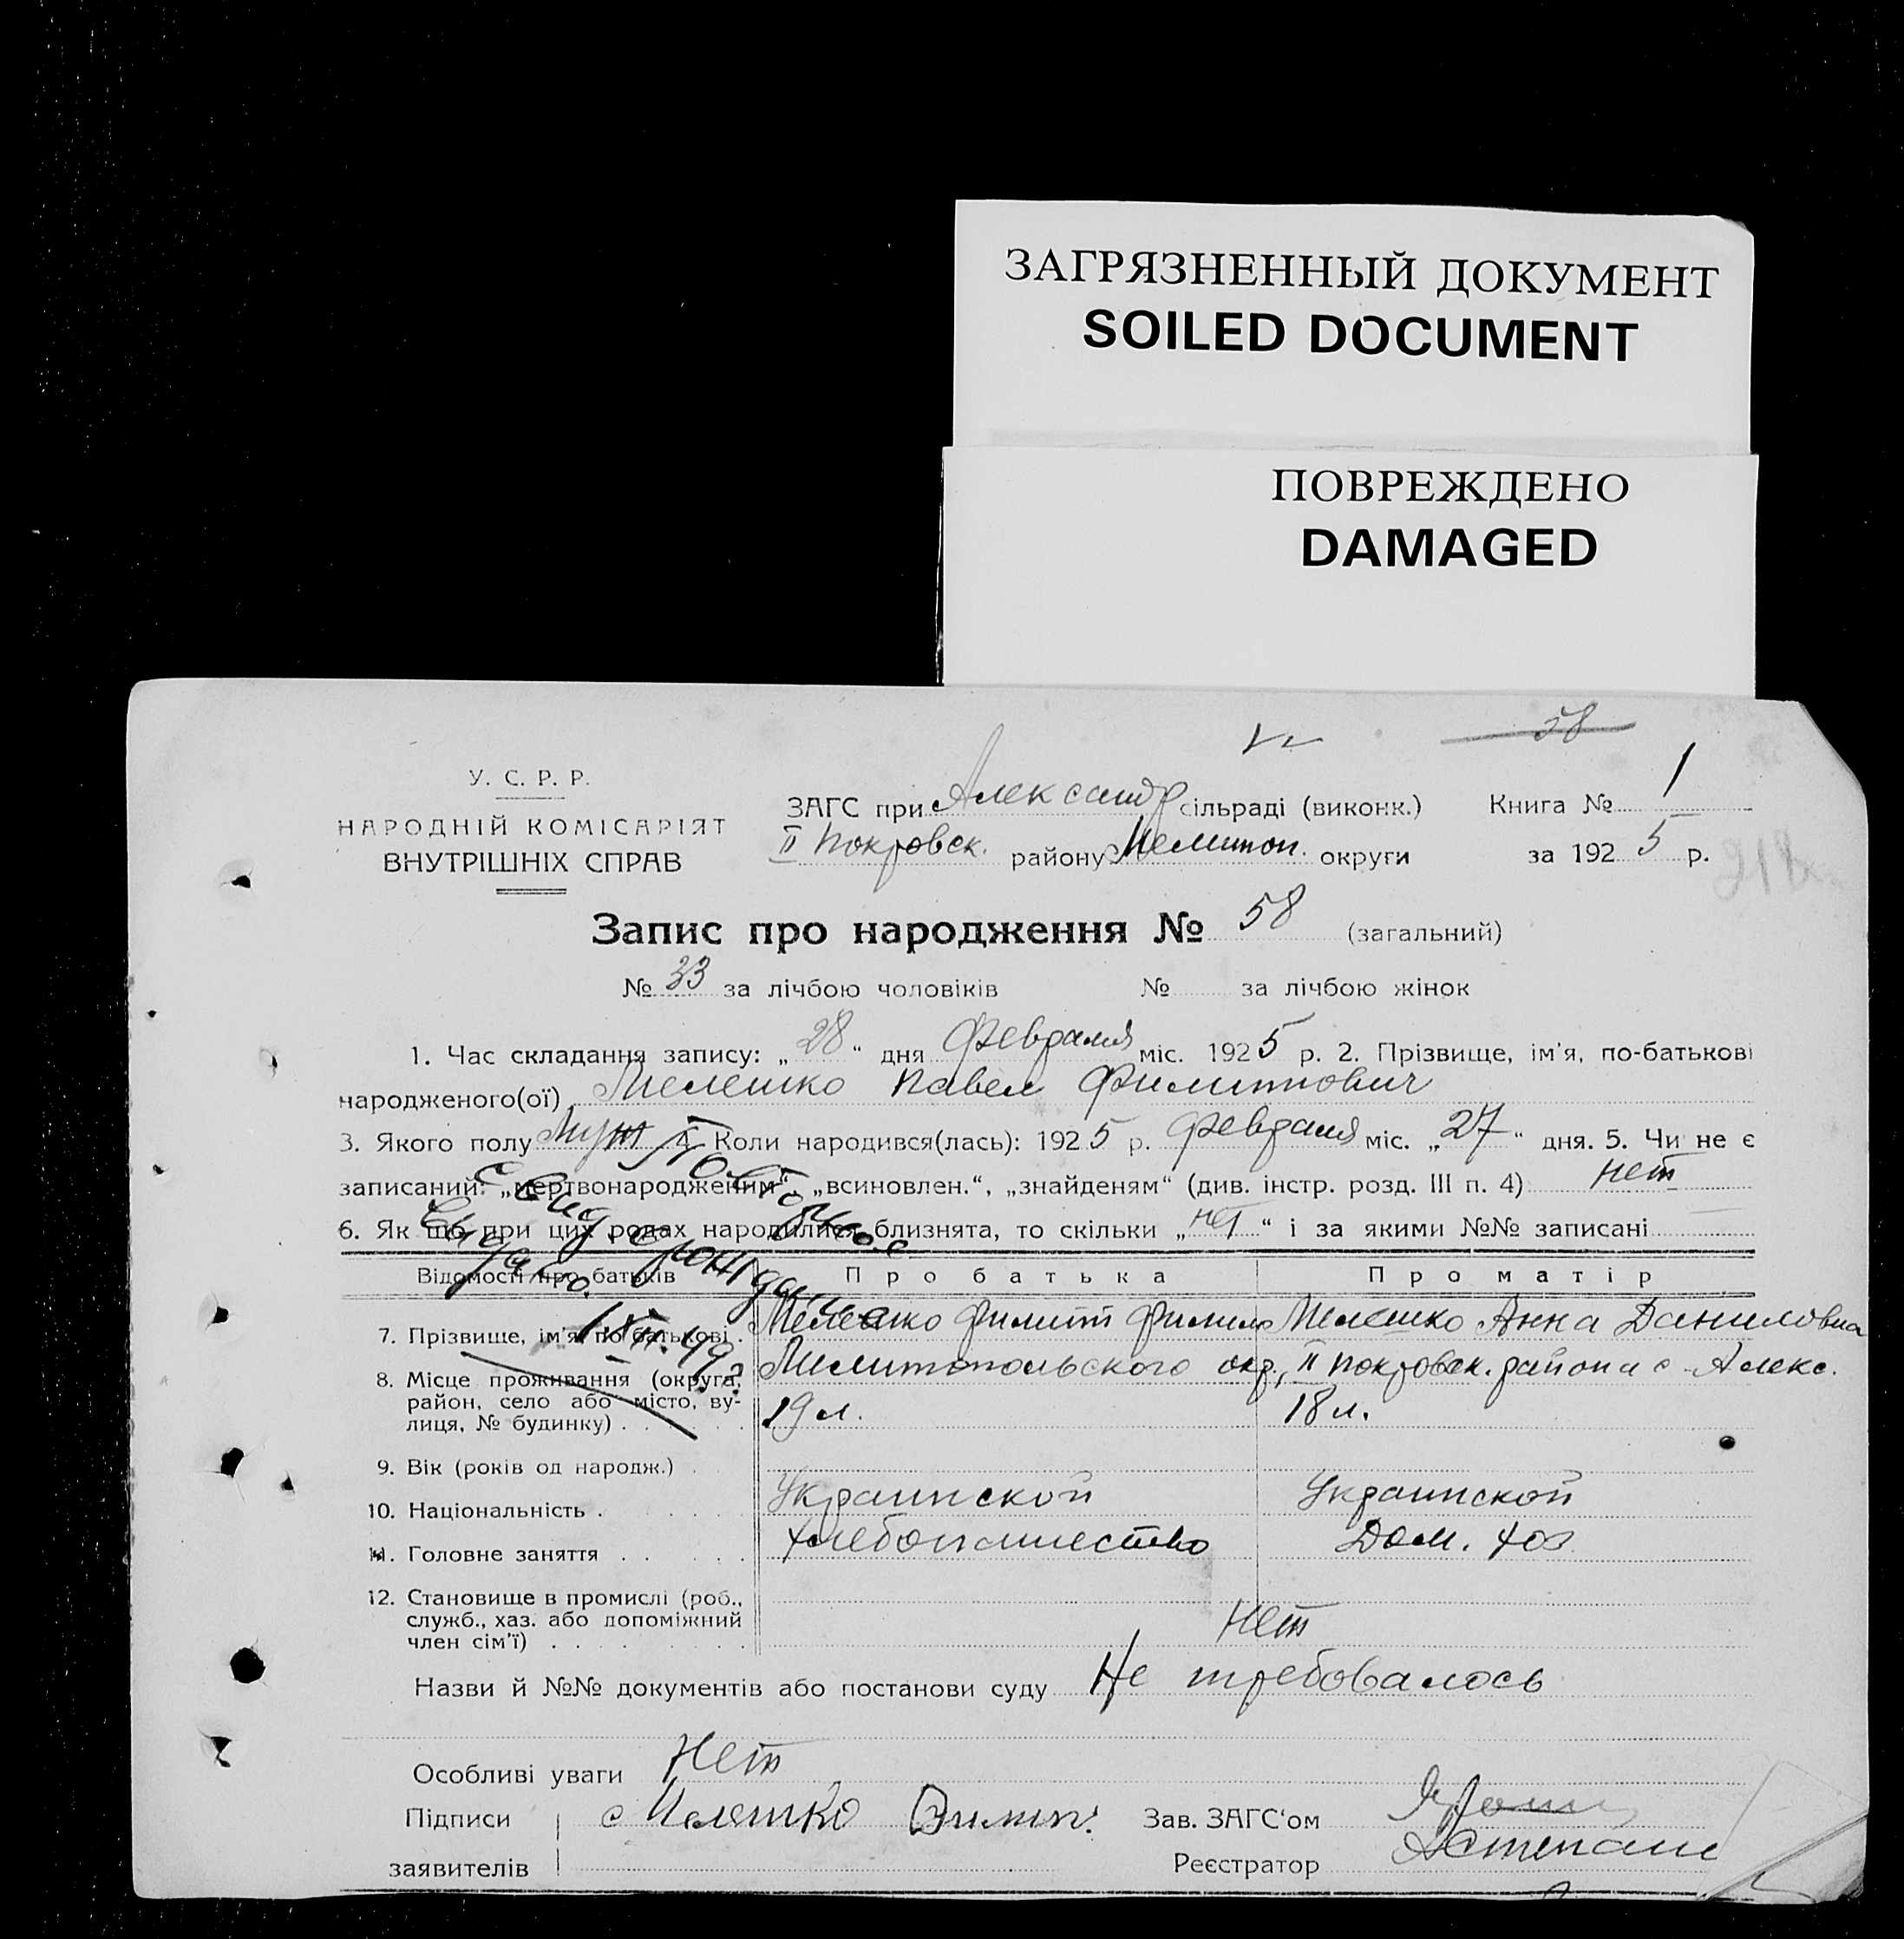 ЗАГРЯЗНЕННЫЙ ДОКУМЕНТ
SOILED DOCUMENT
ПОВРЕЖДЕНО
DAMAGED
58
У. С. Р. Р.
НАРОДНІЙ КОМІСАРІЯТ
ВНУТРІШНІХ СПРАВ
ЗАГС при Александр сільраді (виконк.) Книга № 1
II Покровск. району Мелитоп. округи за 192 5 р.
Запис про народження № 58 (загальний)
№ 33 за лічбою чоловіків № за лічбою жінок
1. Час складання запису: „ 28 “ дня Февраля міс. 192 5 р. 2. Прізвище, ім'я, по-батькові
народженого(ої) Мелешко Павел Филиппович
3. Якого полу Муж 4. Коли народився(лась): 192 5 р. Февраля міс. „ 27 “ дня. 5. Чи не є
записаний: „мертвонародженим“, „всиновлен.“, „знайденям“ (див. інстр. розд. III п. 4) нет
6. Як що при цих родах народилися близнята, то скільки „ нет “ і за якими №№ записані
Повторное
свид. о рождении
Выдано.
Відомості про батьків Про батька Про матір
7. Прізвище, ім'я, по батькові . Мелешко Филипп Филип Мелешко Анна Даниловна
8. Місце проживання (округа, район, село або місто, вулиця, № будинку) . Мелитопольского окр, II Покровск. района с Алекс.
19 л. 18 л.
9. Вік (років од народж.) .
10. Національність . Украинской Украинской
11. Головне заняття . . Хлебопашество Дом. хоз
12. Становище в промислі (роб., служб., хаз. або допоміжний член сім'ї) . Нет
Назви й №№ документів або постанови суду Не требовалось
Особливі уваги Нет
Підписи заявителів Мелешко Зав. ЗАГС'ом
Реєстратор